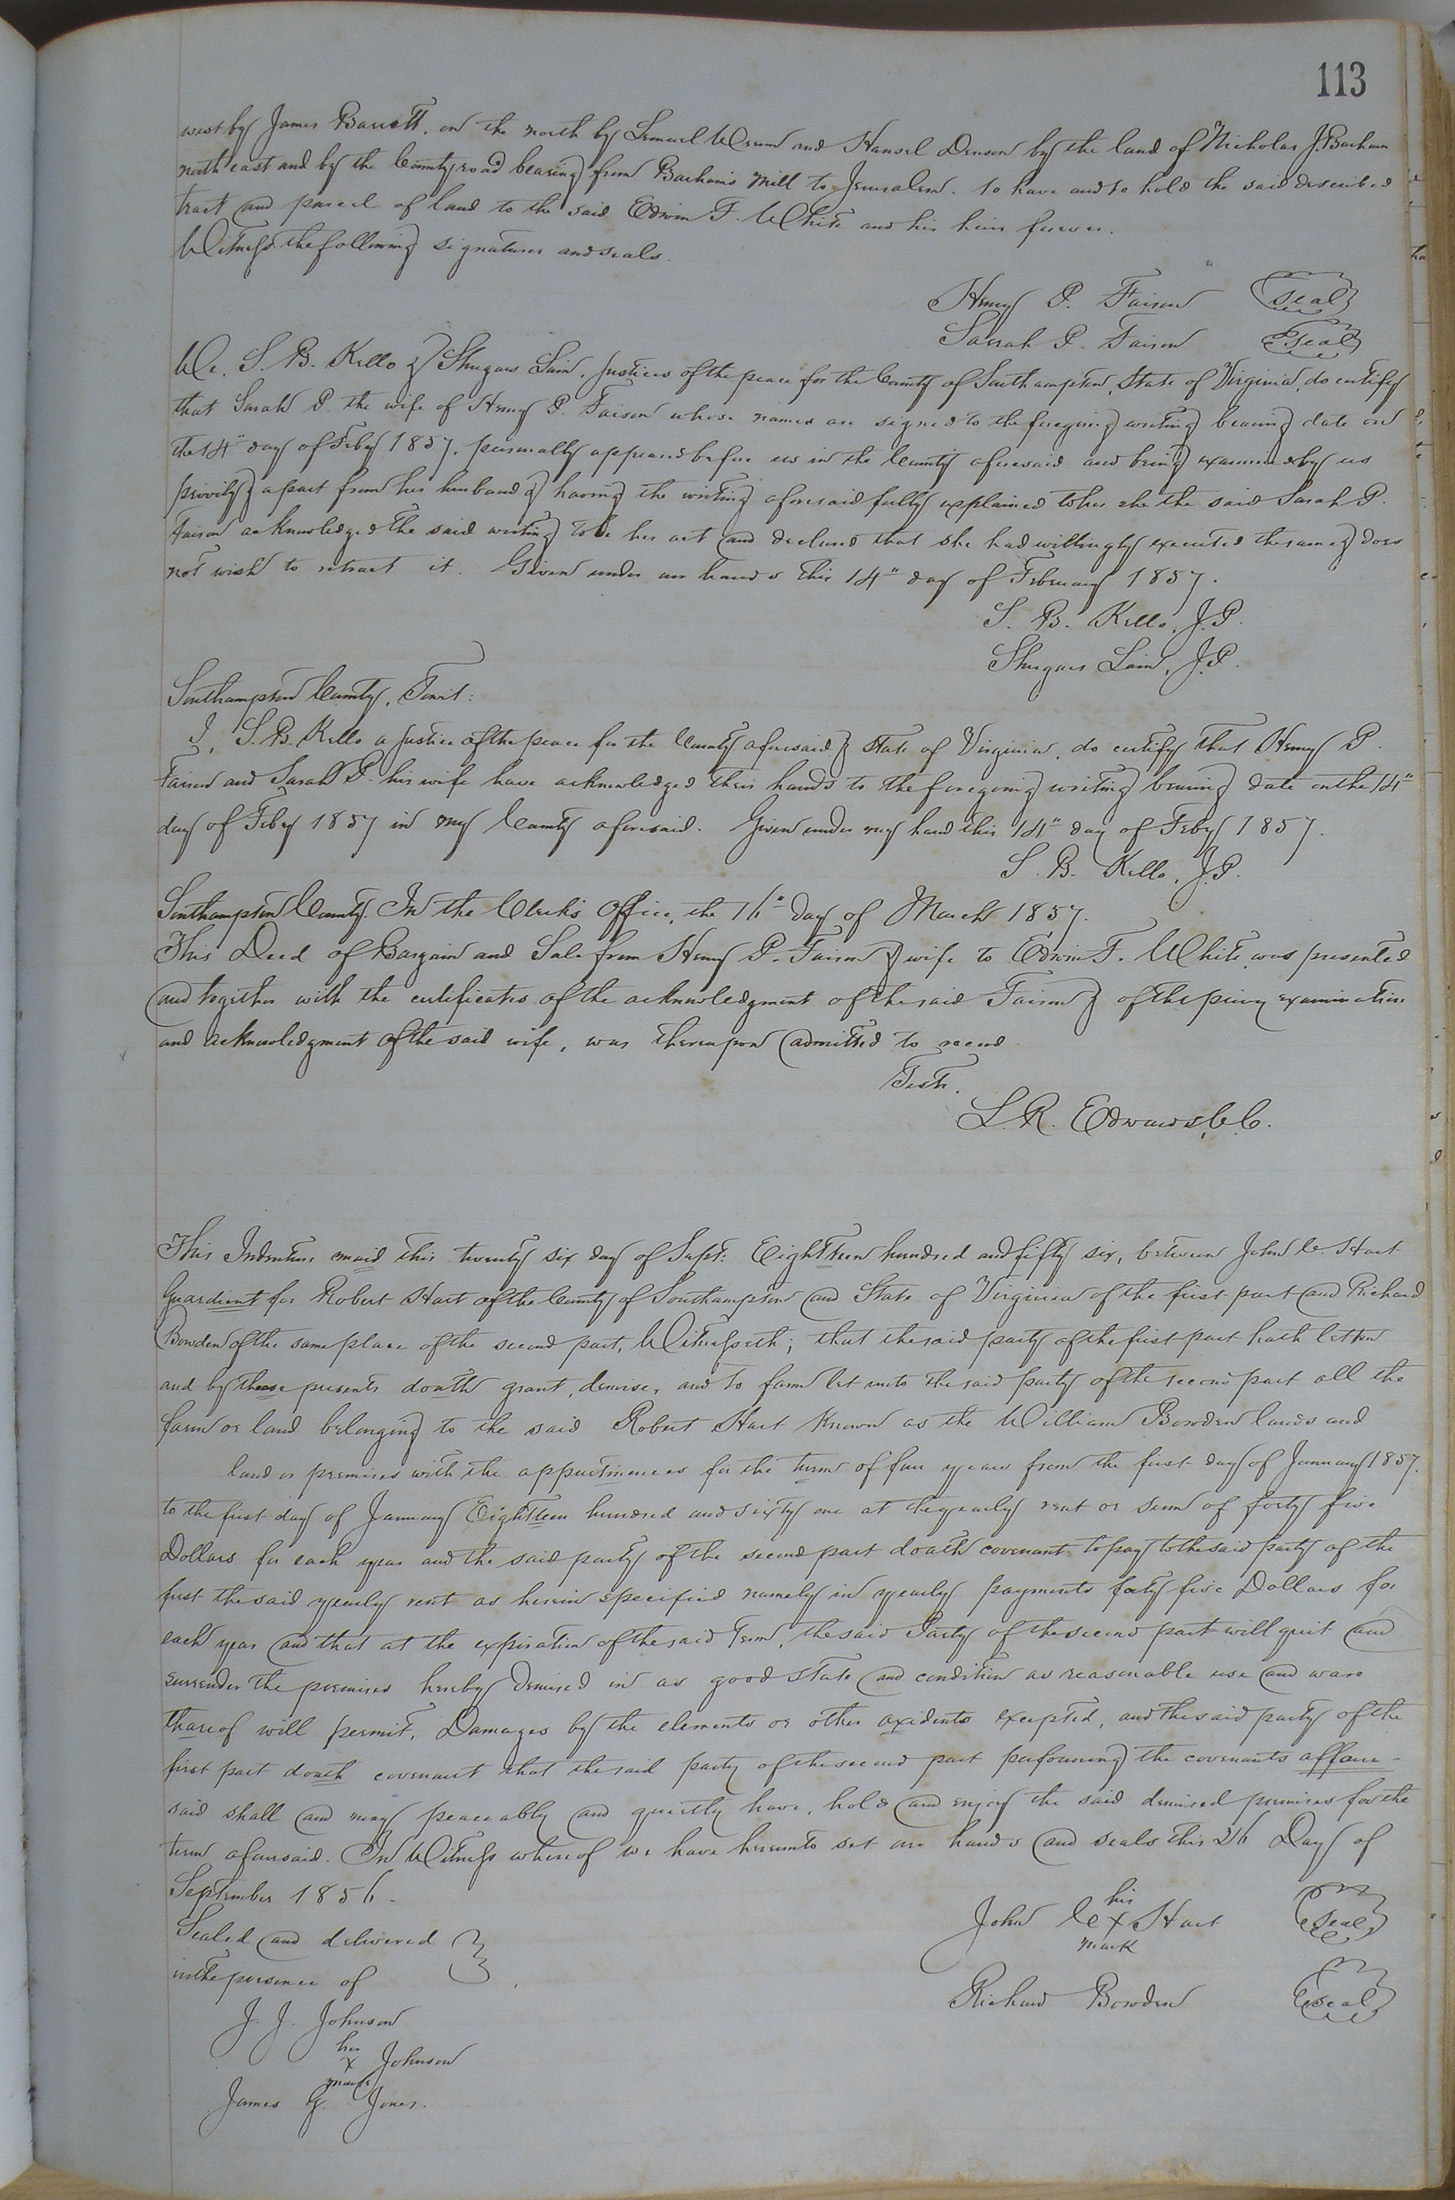 113
west by James Barrett, on the north by Lemuel and Hansel Denson by the land of Nicholas J. Barham
north east and by the County road bearing from Barham's Mill to Jerusalem. To have and to hold the said described
tract and parcel of land to the said Edwin F. White and his heirs forever.
Witness the following signatures and seals.
Henry P. Faison Seal
Sarah P. Faison Seal
We, S. B. Kello & Shugars Lain, Justices of the peace for the County of Southampton, State of Virginia, do certify
that Sarah P. the wife of Henry P. Faison whose names are signed to the foregoing writing bearing date on
the 14" day of Feby 1857, personally appeared before us in the County aforesaid and being examined by us
privily & apart from her husband & having the writing aforesaid fully explained to her she the said Sarah P.
Faison acknowledged the said writing to be her act and declared that she had willingly executed the same & does
not wish to retract it. Given under our hands this 14" day of February 1857.
S. B. Kello, J.P.
Shugars Lain, J.P.
Southampton County, Towit:
I, S. B. Kello a Justice of the peace for the County aforesaid & State of Virginia, do certify that Henry P.
Faison and Sarah P. his wife have acknowledged their hands to the foregoing writing bearing date on the 14"
day of Feby 1857 in my County aforesaid. Given under my hand this 14" day of Feby 1857.
S. B. Kello, J.P.
Southampton County. In the Clerk's Office, the 16" day of March 1857.
This Deed of Bargain and Sale from Henry P. Faison & wife to Edwin F. White was presented
and together with the certificates of the acknowledgment of the said Faison & of the privy examination
and acknowledgment of the said wife, was thereupon admitted to record
Teste.
L. R. Edwards, C.C.
This Indenture maid this twenty six day of Sept: Eighteen hundred and fifty six, between John C. Hart
Guardient for Robert Hart of the County of Southampton and State of Virginia of the first part and Richard
Bowden of the same place of the second part, Witnesseth; that the said party of the first part hath letten
and by thease presents doath grant, demise, and to farm let unto the said party of the second part all the
farm or land belonging to the said Robert Hart known as the William Bowden lands and
land or premises with the appurtinences for the turm of four years from the first day of January 1857.
to the first day of January Eighteen hundred and sixty one at the yearly rent or sum of forty five
Dollars for each year and the said party of the second part doath covenant to pay to the said party of the
first the said yearly rent as herein specified namely in yearly payments forty five Dollars for
each year and that at the expiration of the said Term, the said Party of the second part will quit and
surrender the premises hereby demised in as good state and condition as reasonable use and ware
thareof will permit, Damages by the elements or other axidents excepted, and the said party of the
first part doath covenant that the said party of the second part performing the covenants affore-
said shall and may peaceably and quietly have, hold and enjoy the said demised premises for the
term aforesaid. In Witness whereof we have hereunto set our hands and seals this 26 Day of
September 1856.
his
John C X Hart Seal
mark
Sealed and delivered
in the presence of
Richard Bowden Seal
J. J. Johnson
her
X Johnson
mark
James G. Jones.